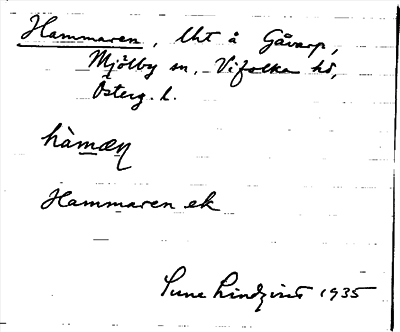 Hammaren, lht å Gåvarp,
Mjölby sn, Vifolka hd,
Österg. l.
hàmæn
Hammaren ek
Sune Lindqvist 1935